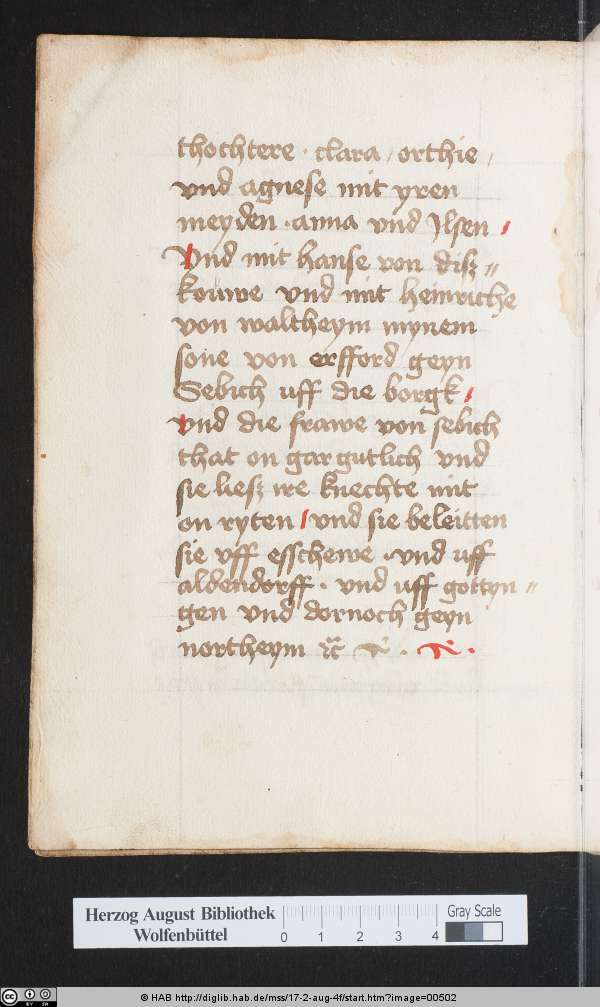 thochtere · clara / orthie /
vnd agnese mit yren
meyden · anna vnd Jlsen /
Vnd mit hanse von disz=
kouwe vnd mit heinriche
von waltheym mynem
sone von erfford geyn
Sebich uff die borgk /
vnd die frawe von sebich
that on gar gutlich vnd
sie liesz ire knechte mit
on ryten / vnd sie beleitten
sie vff esschewe · vnd uff
aldendorff · vnd uff gottyn=
gen vnd dornoch geyn
northeym
Herzog August Bibliothek
Wolfenbüttel
0 1 2 3 4
Gray Scale
© HAB http://diglib.hab.de/mss/17-2-aug-4f/start.htm?image=00502